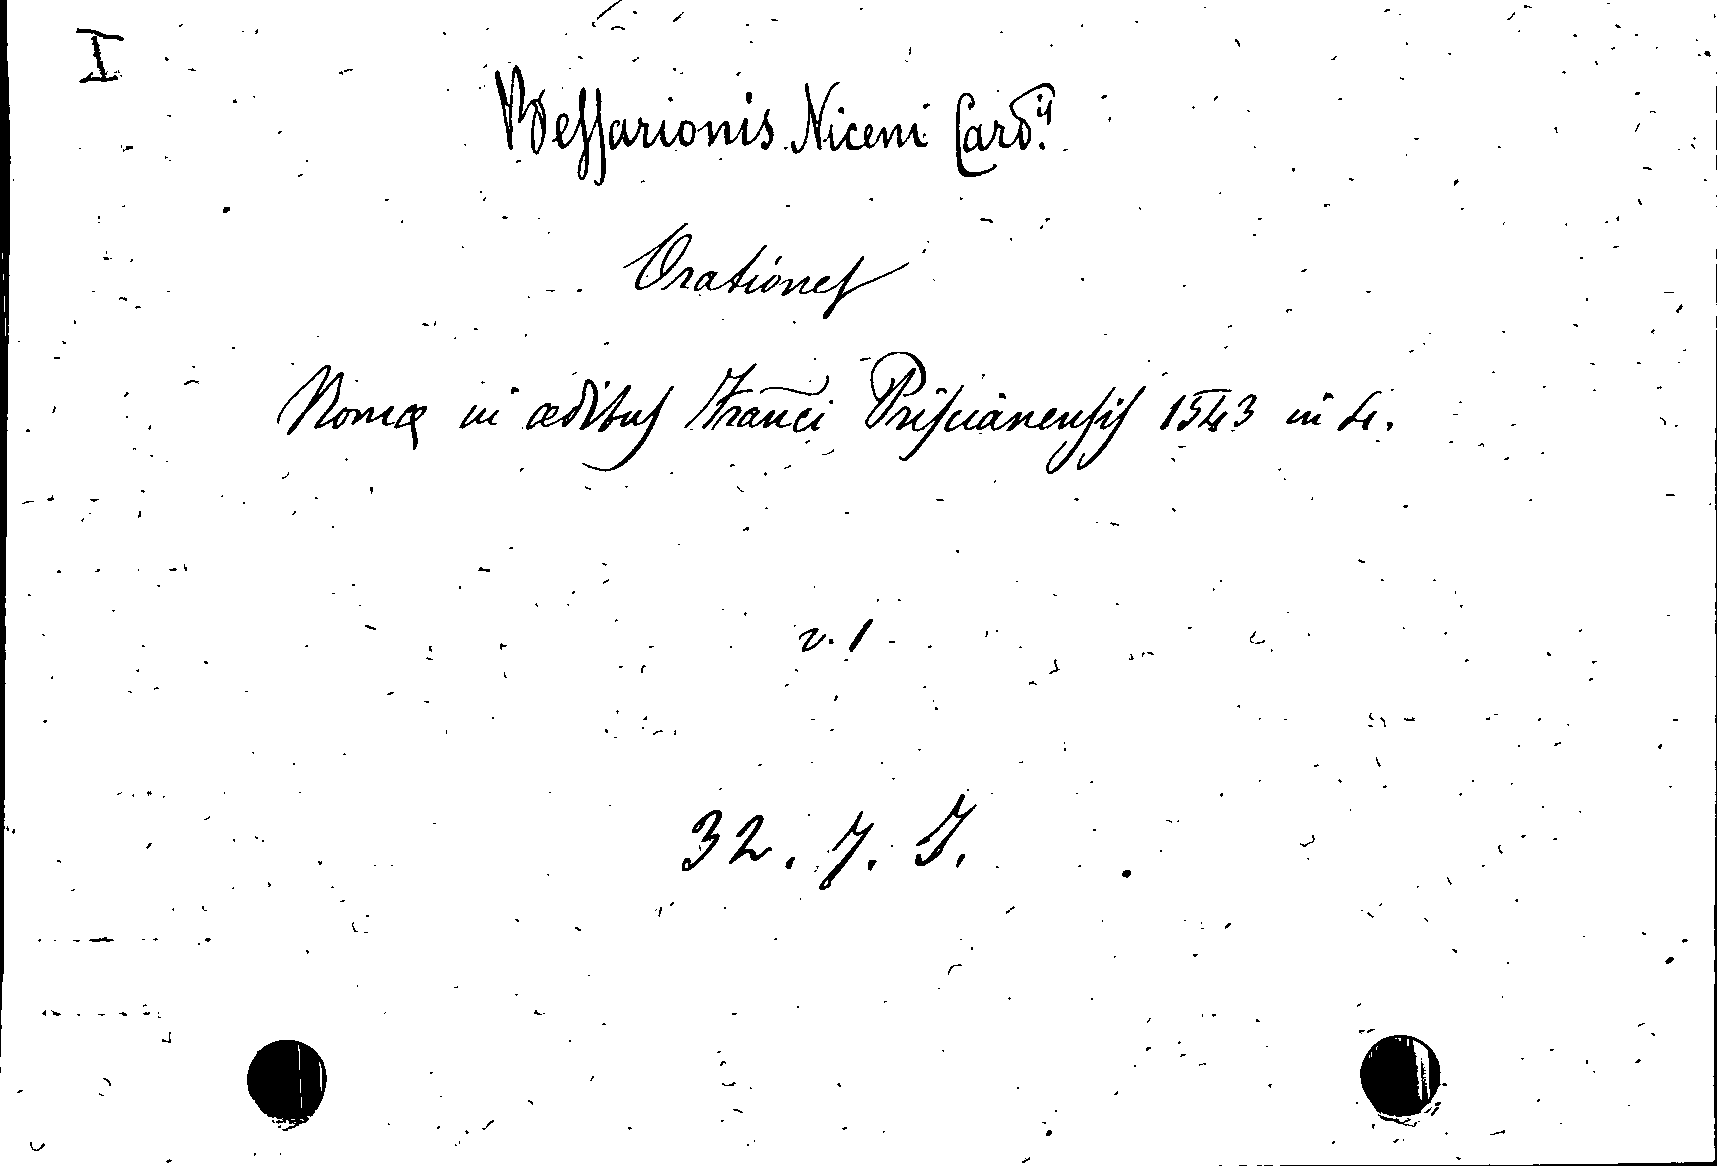 I
Bessarionis Niceni Card.ij
Orationes
Romæ in ædibus Franci Priscianensis 1543 in 4.
v. 1
32. 7. I.